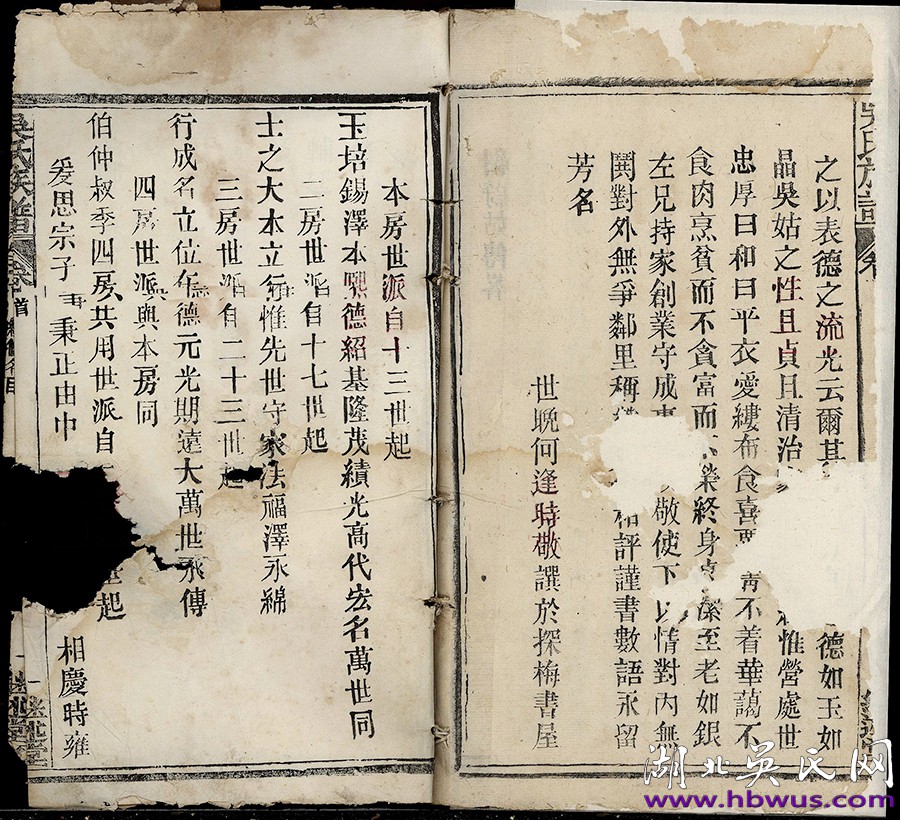 之以表德之流光云爾其德如玉如
晶吳姑之性且貞且清治惟營處世
忠厚曰和曰平衣愛縷布食喜不着華藹不
食肉烹貧而不貪富而榮終身潔至老如銀
左兄持家創業守成敬使下以情對內無
鬩對外無爭鄰里稱和評謹書數語永留
芳名
世晚何逢時敬譔於探梅書屋
吳氏族譜
本房世派自十三世起
玉培錫澤本熙德紹基隆茂績光高代宏名萬世同
二房世派自十七世起
士之大本立行惟先世守家法福澤永綿
三房世派自二十三世起
行成名立位存德元光期遠大萬世永傳
四房世派與本房同
伯仲叔季四房共用世派自世起
爰思宗子秉正由中相慶時雍
吳氏族譜
卷首
湖北吳氏网
www.hbwus.com